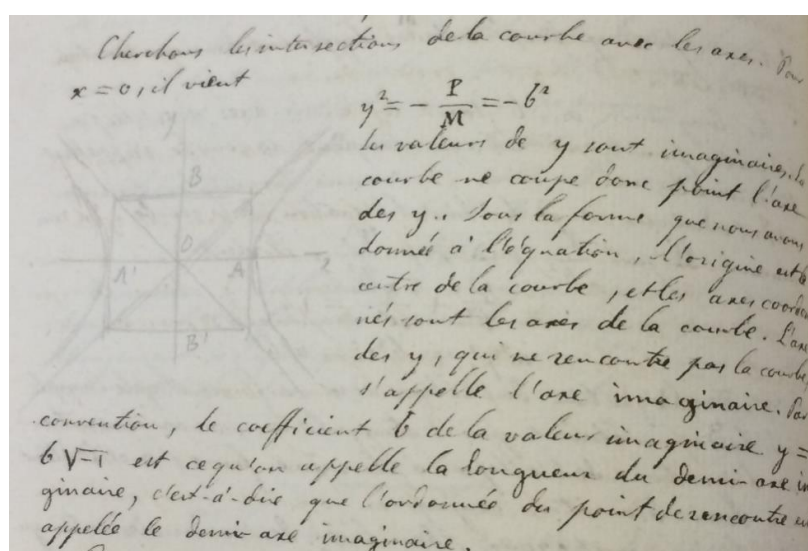 Cherchons les intersections de la courbe avec les axes. Pour
x = 0, il vient
y² = - P/M = - b²
Les valeurs de y sont imaginaires. La
courbe ne coupe donc point l'axe
des y. Sous la forme que nous avons
donnée à l'équation, l'origine est
centre de la courbe, et les axes coordon
nés sont les axes de la courbe. L'axe
des y, qui ne rencontre pas la courbe,
s'appelle l'axe imaginaire. Par
convention, le coefficient b de la valeur imaginaire y =
b √-1 est ce qu'on appelle la longueur du demi-axe
ginaire, c'est-à-dire que l'ordonnée du point de rencontre
appelée le demi-axe imaginaire.
B
O
A'
A
x
B'